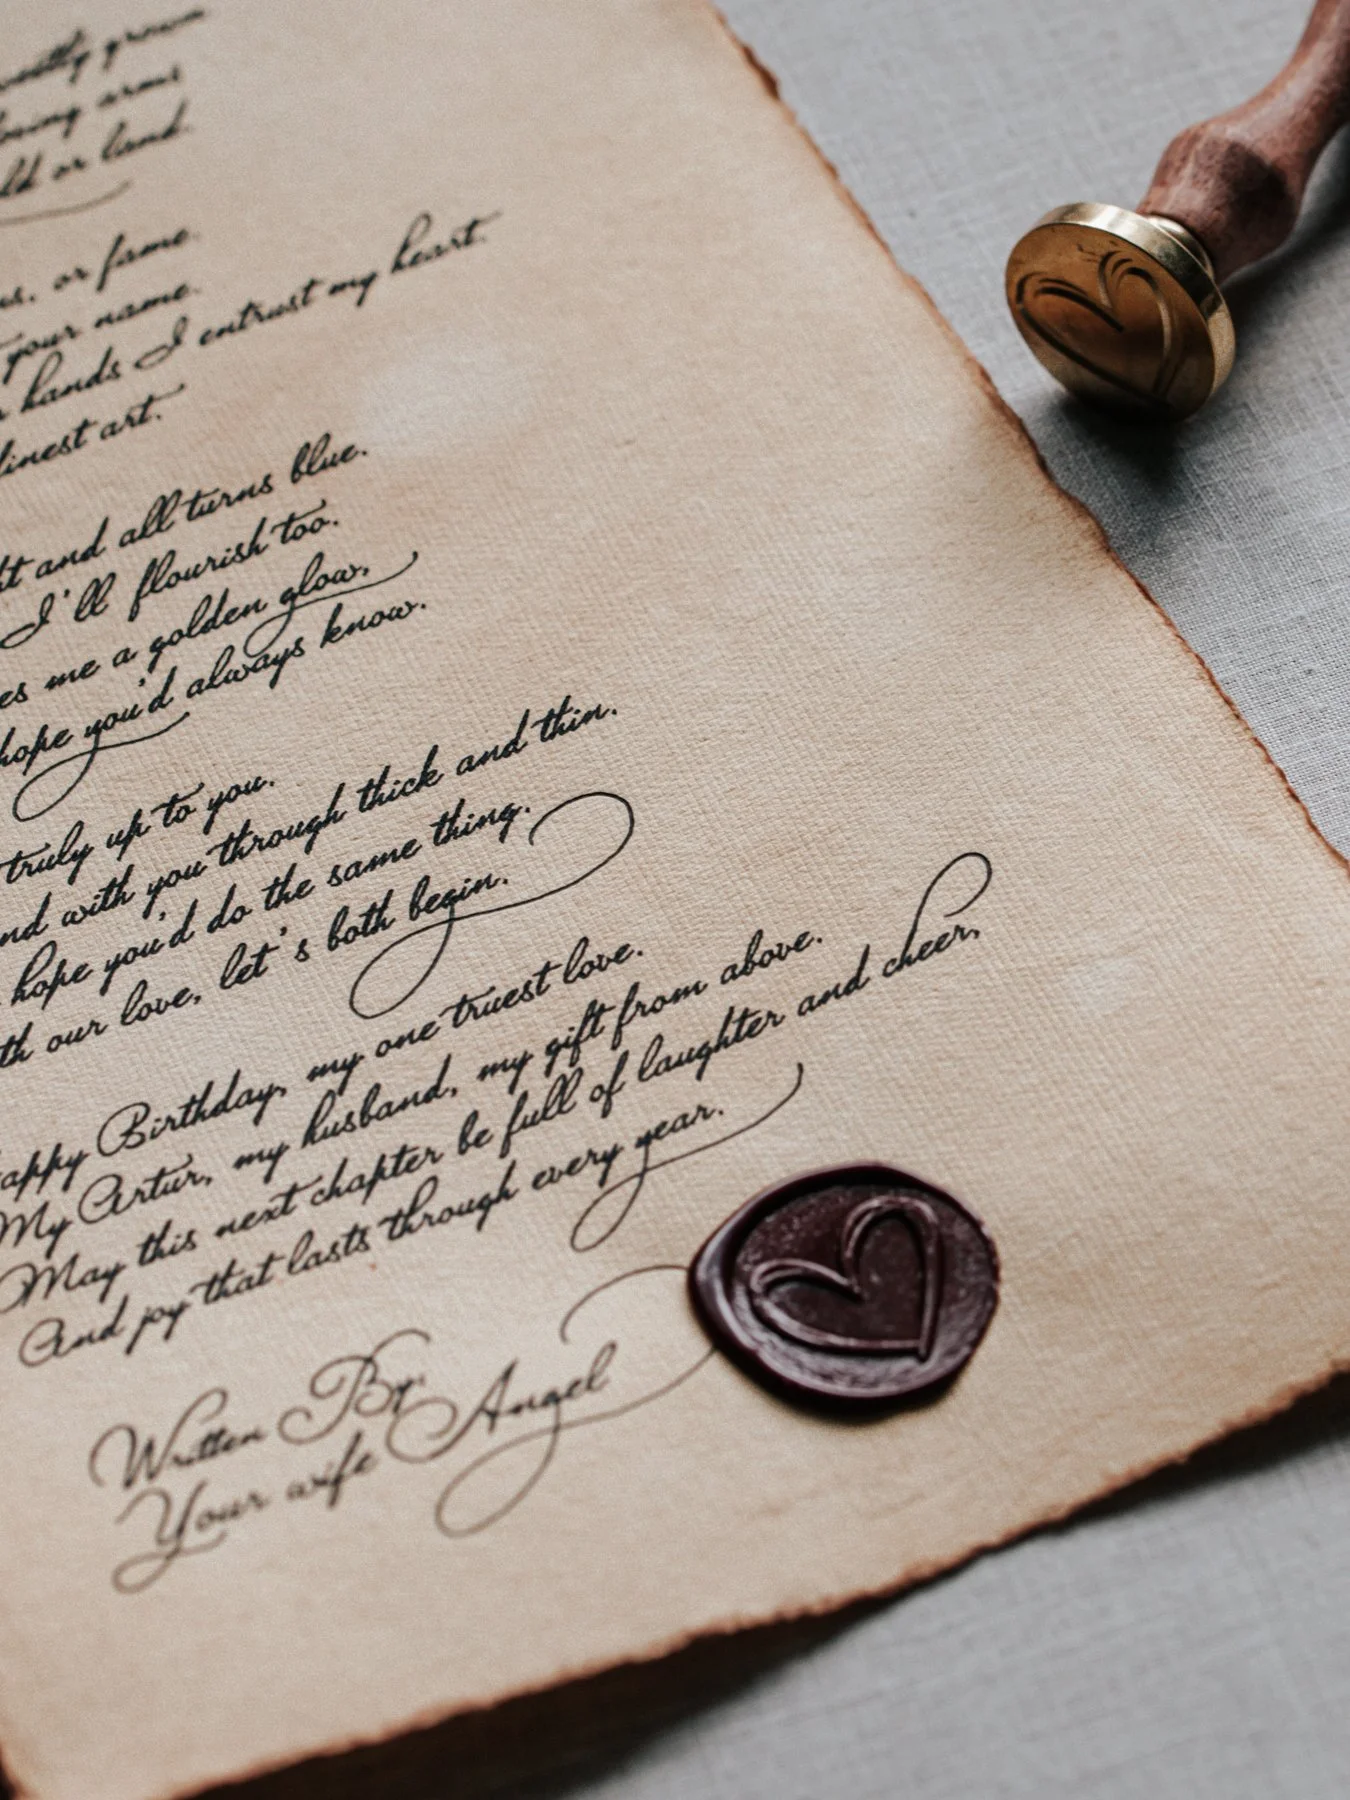 grown
loving arms
or land.
or fame.
your name.
hands I entrust my heart.
finest art.
and all turns blue.
I'll flourish too.
me a golden glow,
hope you'd always know.
truly up to you.
with you through thick and thin.
hope you'd do the same thing.
our love, let's both begin.
Happy Birthday, my one truest love.
My Artur, my husband, my gift from above.
May this next chapter be full of laughter and cheer,
And joy that lasts through every year.
Written By:
Your wife Angel